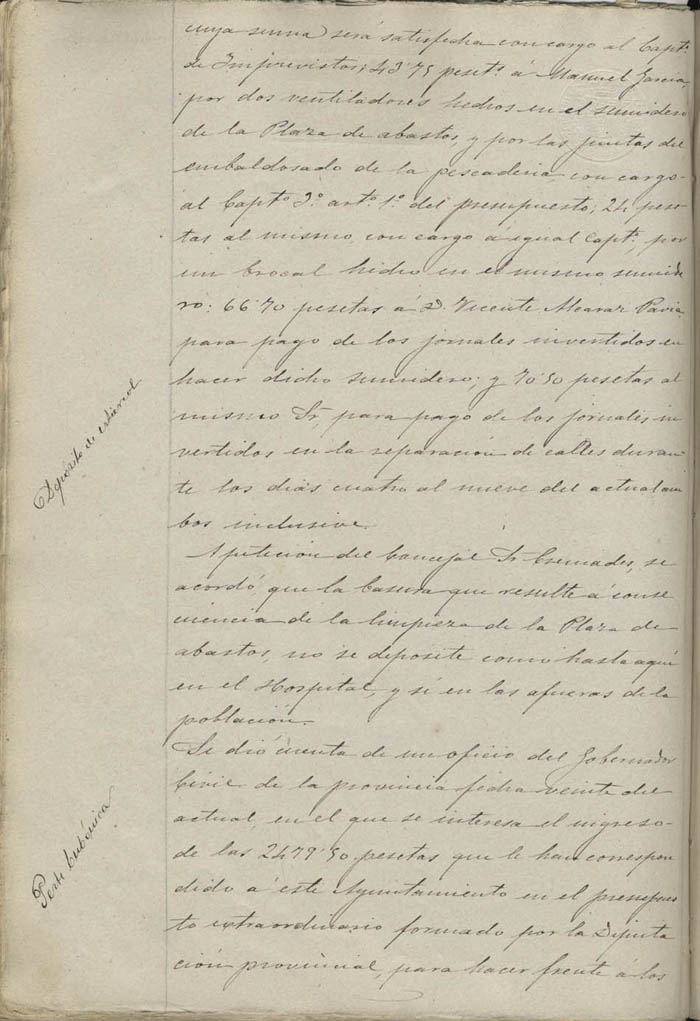 cuya suma será satisfecha con cargo al Captº.
de Imprevistos; 43'75 pesetˢ á Manuel Garcia,
por dos ventiladores hechos en el sumidero
de la Plaza de abastos, y por las juntas del
embaldosado de la pescaderia, con cargo
al Captº 3º artº 1º del presupuesto; 24 pese
tas al mismo, con cargo á igual Captº, por
un brocal hecho en el mismo sumide
ro; 66'70 pesetas á D. Vicente Alcaraz Pavia
para pago de los jornales invertidos en
hacer dicho sumidero; y 70'50 pesetas al
mismo Sr, para pago de los jornales in
vertidos en la reparación de calles duran
te los dias cuatro al nueve del actual am
bos inclusive.
Deposito de estiercol
A petición del Concejal Sr Cremades, se
acordó, que la basura que resulte á conse
cuencia de la limpieza de la Plaza de
abastos, no se deposite como hasta aquí
en el Hospital, y sí en las afueras de la
población.
Peste bubónica
Se dió cuenta de un oficio del Gobernador
Civil de la provincia fecha veinte del
actual, en el que se interesa el ingreso
de las 2479'50 pesetas que le han correspon
dido á este Ayuntamiento en el presupues
to extraordinario formado por la Diputa
ción provincial, para hacer frente á los